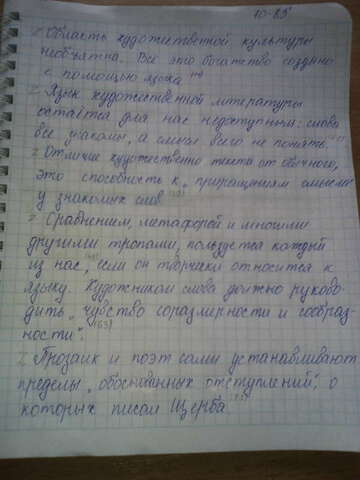 Z Область художественной культуры
необъятна. Всё это богатство создано
с помощью языка
Z Язык художественной литературы
остаётся для нас недоступным: слова
все знакомы, а смысл всего не понять.
Z Отличие художественно текста от обычного,
это способность к „приращениям смысла
у знакомых слов
Z Сравнением, метафорой и многими
другими тропами, пользуется каждый
из нас, если он творчески относится к
языку. Художником слова должно руково-
дить „чувство соразмерности и сообраз-
ности". (63)
Z Прозаик и поэт сами устанавливают
пределы „обоснованных отступлений", о
которых писал Щерба